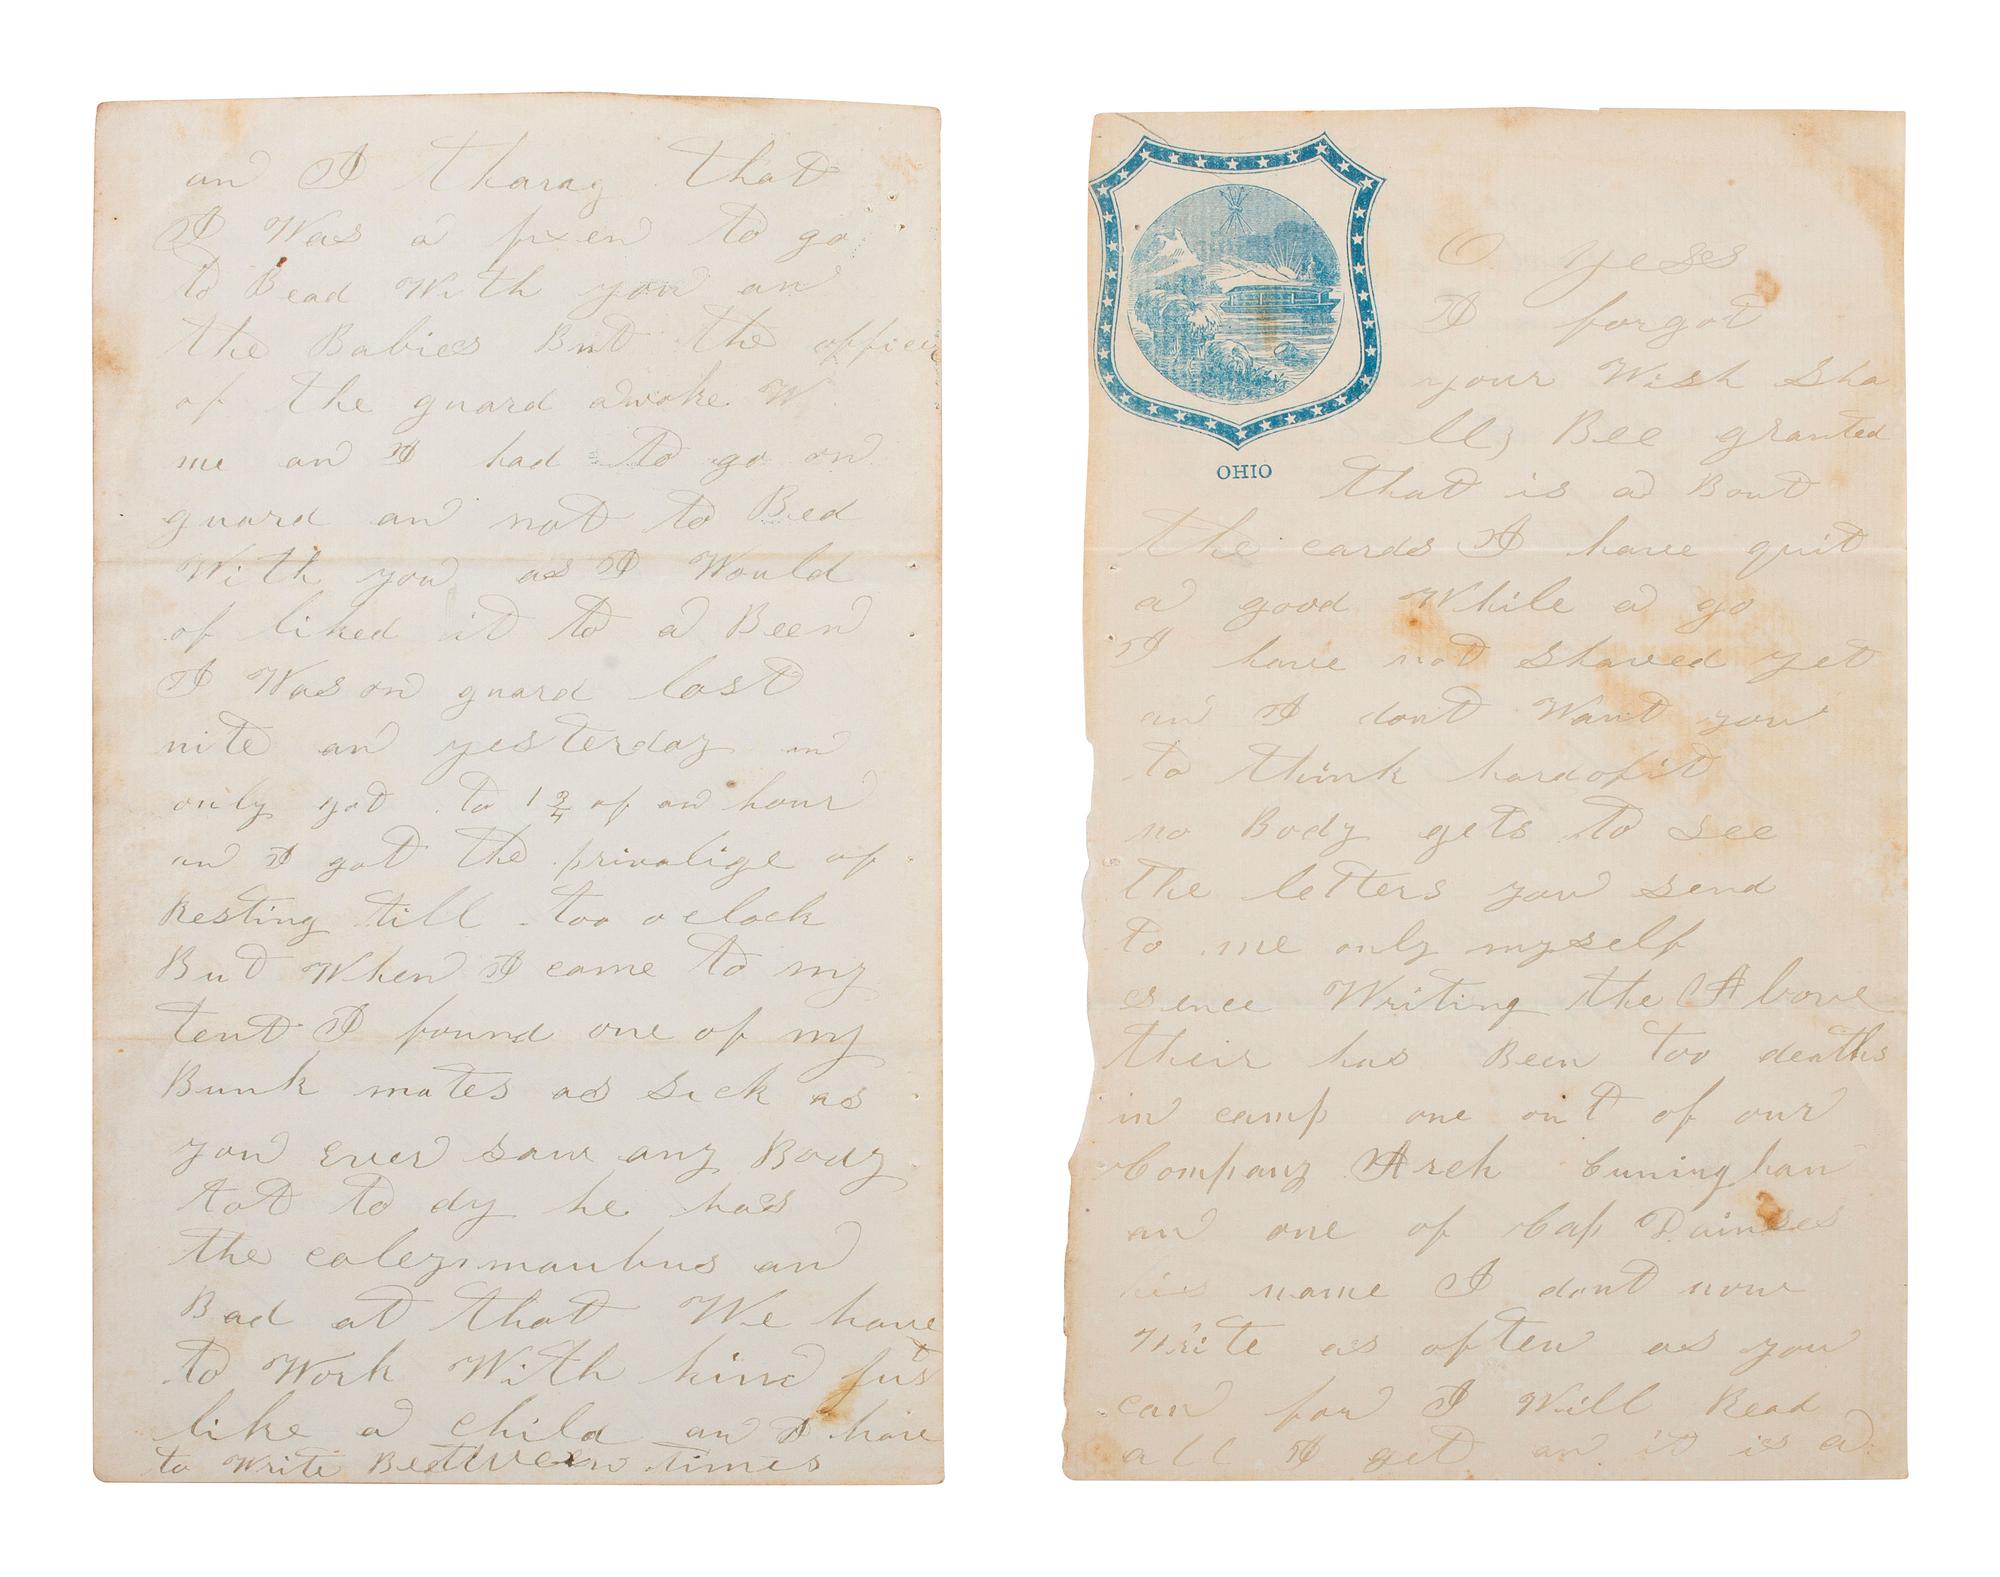 an I tharag that
I Was a fixen to go
to Bead With you an
the Babies But the officer
of the guard awoke W
me an I had to go on
guard an not to Bed
With you as I Would
of liked it to a Been
I Was on guard last
nite an yesterday an
only got to 1 3/4 of an hour
an I got the privalige of
Resting till too o clock
But When I came to my
tent I found one of my
Bunk mates as sick as
you Ever saw any Body
not to dy he has
the and
Bad at that We have
to Work With him just
like a child an I have
to Write Between times
O yeses
I forgot
your Wish sha
ll, Bee granted
that is a Bout
the cards I have quit
a good While a go
I have not shaved yet
an I dont Want you
to think hardofit
no Body gets to see
the letters you send
to me only myself
sence Writing the Above
their has Been too deaths
in camp one out of our
Company Arch Cuningham
an one of Cap
his name I dont now
Write as often as you
can for I Will Read
all I get an it is a
OHIO